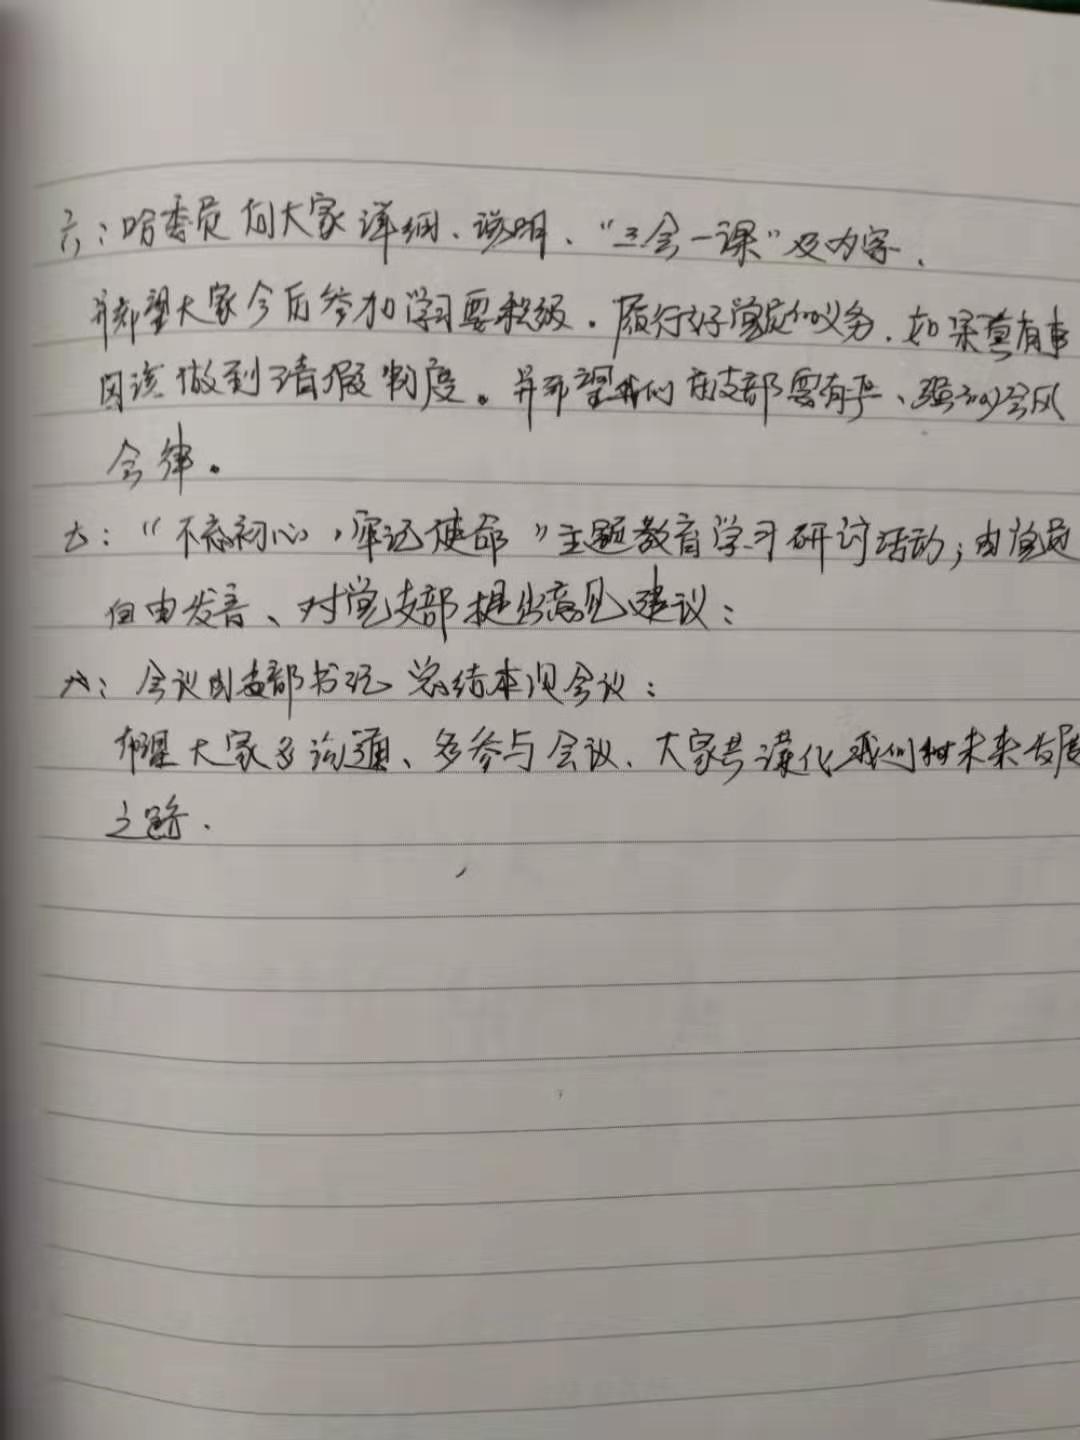 六：哈委员向大家详细、说明、“三会一课”及内容.
并希望大家今后参加学习要积极。履行好党员的义务.如果真有事
因该做到请假制度。并希望我们党支部要有严、强的会风
会律。
七：“不忘初心，牢记使命”主题教育学习研讨活动；由党员
自由发言、对党支部提出意见建议：
八：会议由支部书记总结本次会议：
希望大家多沟通、多参与会议、大家共谋化我们村未来发展
之路.